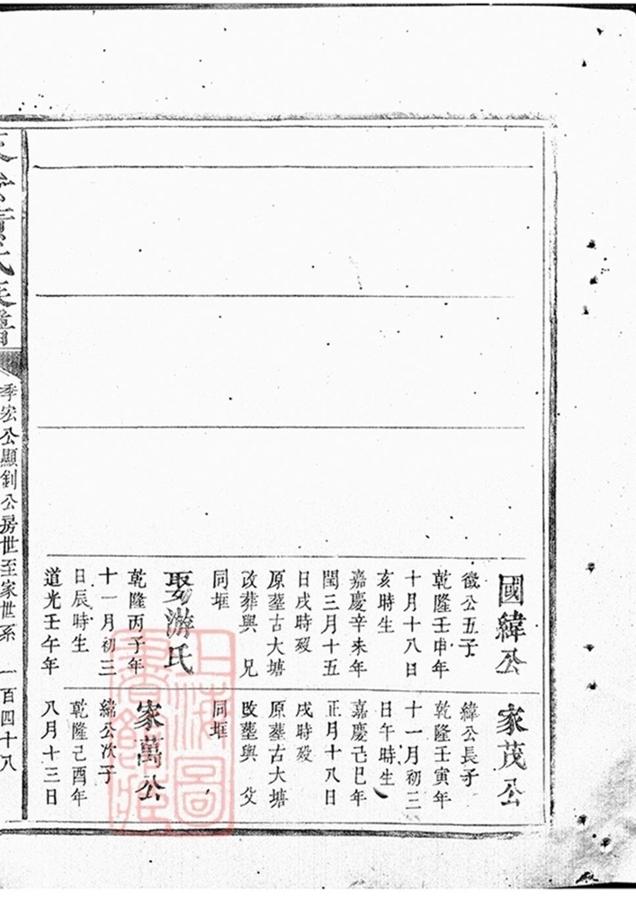 國緯公
徵公五子
乾隆壬申年
十月十八日
亥時生
嘉慶辛未年
閏三月十五
日戌時殁
原塟古大塘
改葬與 兄
同堆
娶游氏
乾隆丙子年
十一月初三
日辰時生
道光壬午年
家茂公
緯公長子
乾隆壬寅年
十一月初三
日午時生
嘉慶己巳年
正月十八日
戌時殁
原塟古大塘
改塟與 父
同堆
家萬公
緯公次子
乾隆己酉年
八月十三日
氏族譜
季宏公顯釗公房世至家世系 一百四十八
上海圖書館藏